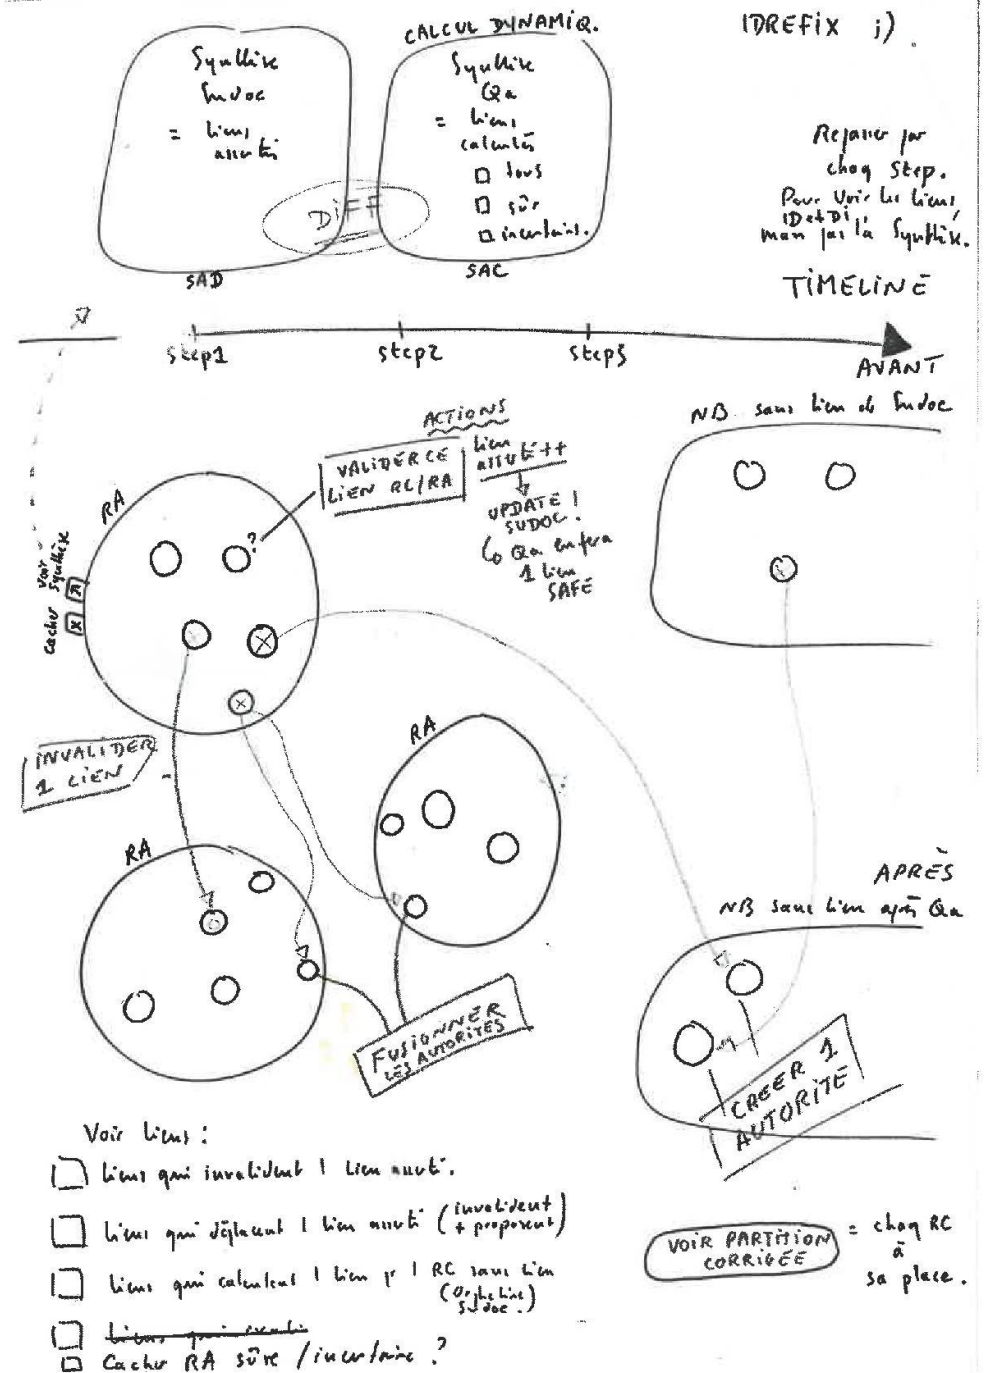 IDREFIX ;)
CALCUL DYNAMIQ.
Synthèse
Sudoc
= liens
assertés
SAD
Synthèse
Qa
= liens
calculés
tous
sûr
incertains.
SAC
DIFF
Repasser par
chaq Step.
Pour voir les liens
ID et Di,
mais pas la Synthèse.
TIMELINE
step1
step2
step3
AVANT
NB sans lien ds Sudoc
ACTIONS
VALIDER CE
LIEN RC/RA
lien
asserté ++
UPDATE !
SUDOC.
Qa en fera
1 lien
SAFE
RA
?
voir
synthèse
cacher
x
INVALIDER
1 LIEN
RA
RA
FUSIONNER
LES AUTORITÉS
APRÈS
NB sans lien après Qa
CREER 1
AUTORITÉ
Voir liens :
liens qui invalident 1 lien asserté.
liens qui déplacent 1 lien asserté (invalident
+ proposent)
liens qui calculent 1 lien pr 1 RC sans lien
(Orpheline
Sudoc.)
liens qui invali
Cacher RA sûre / incertaine ?
VOIR PARTITION
CORRIGÉE
= chaq RC
à
sa place.